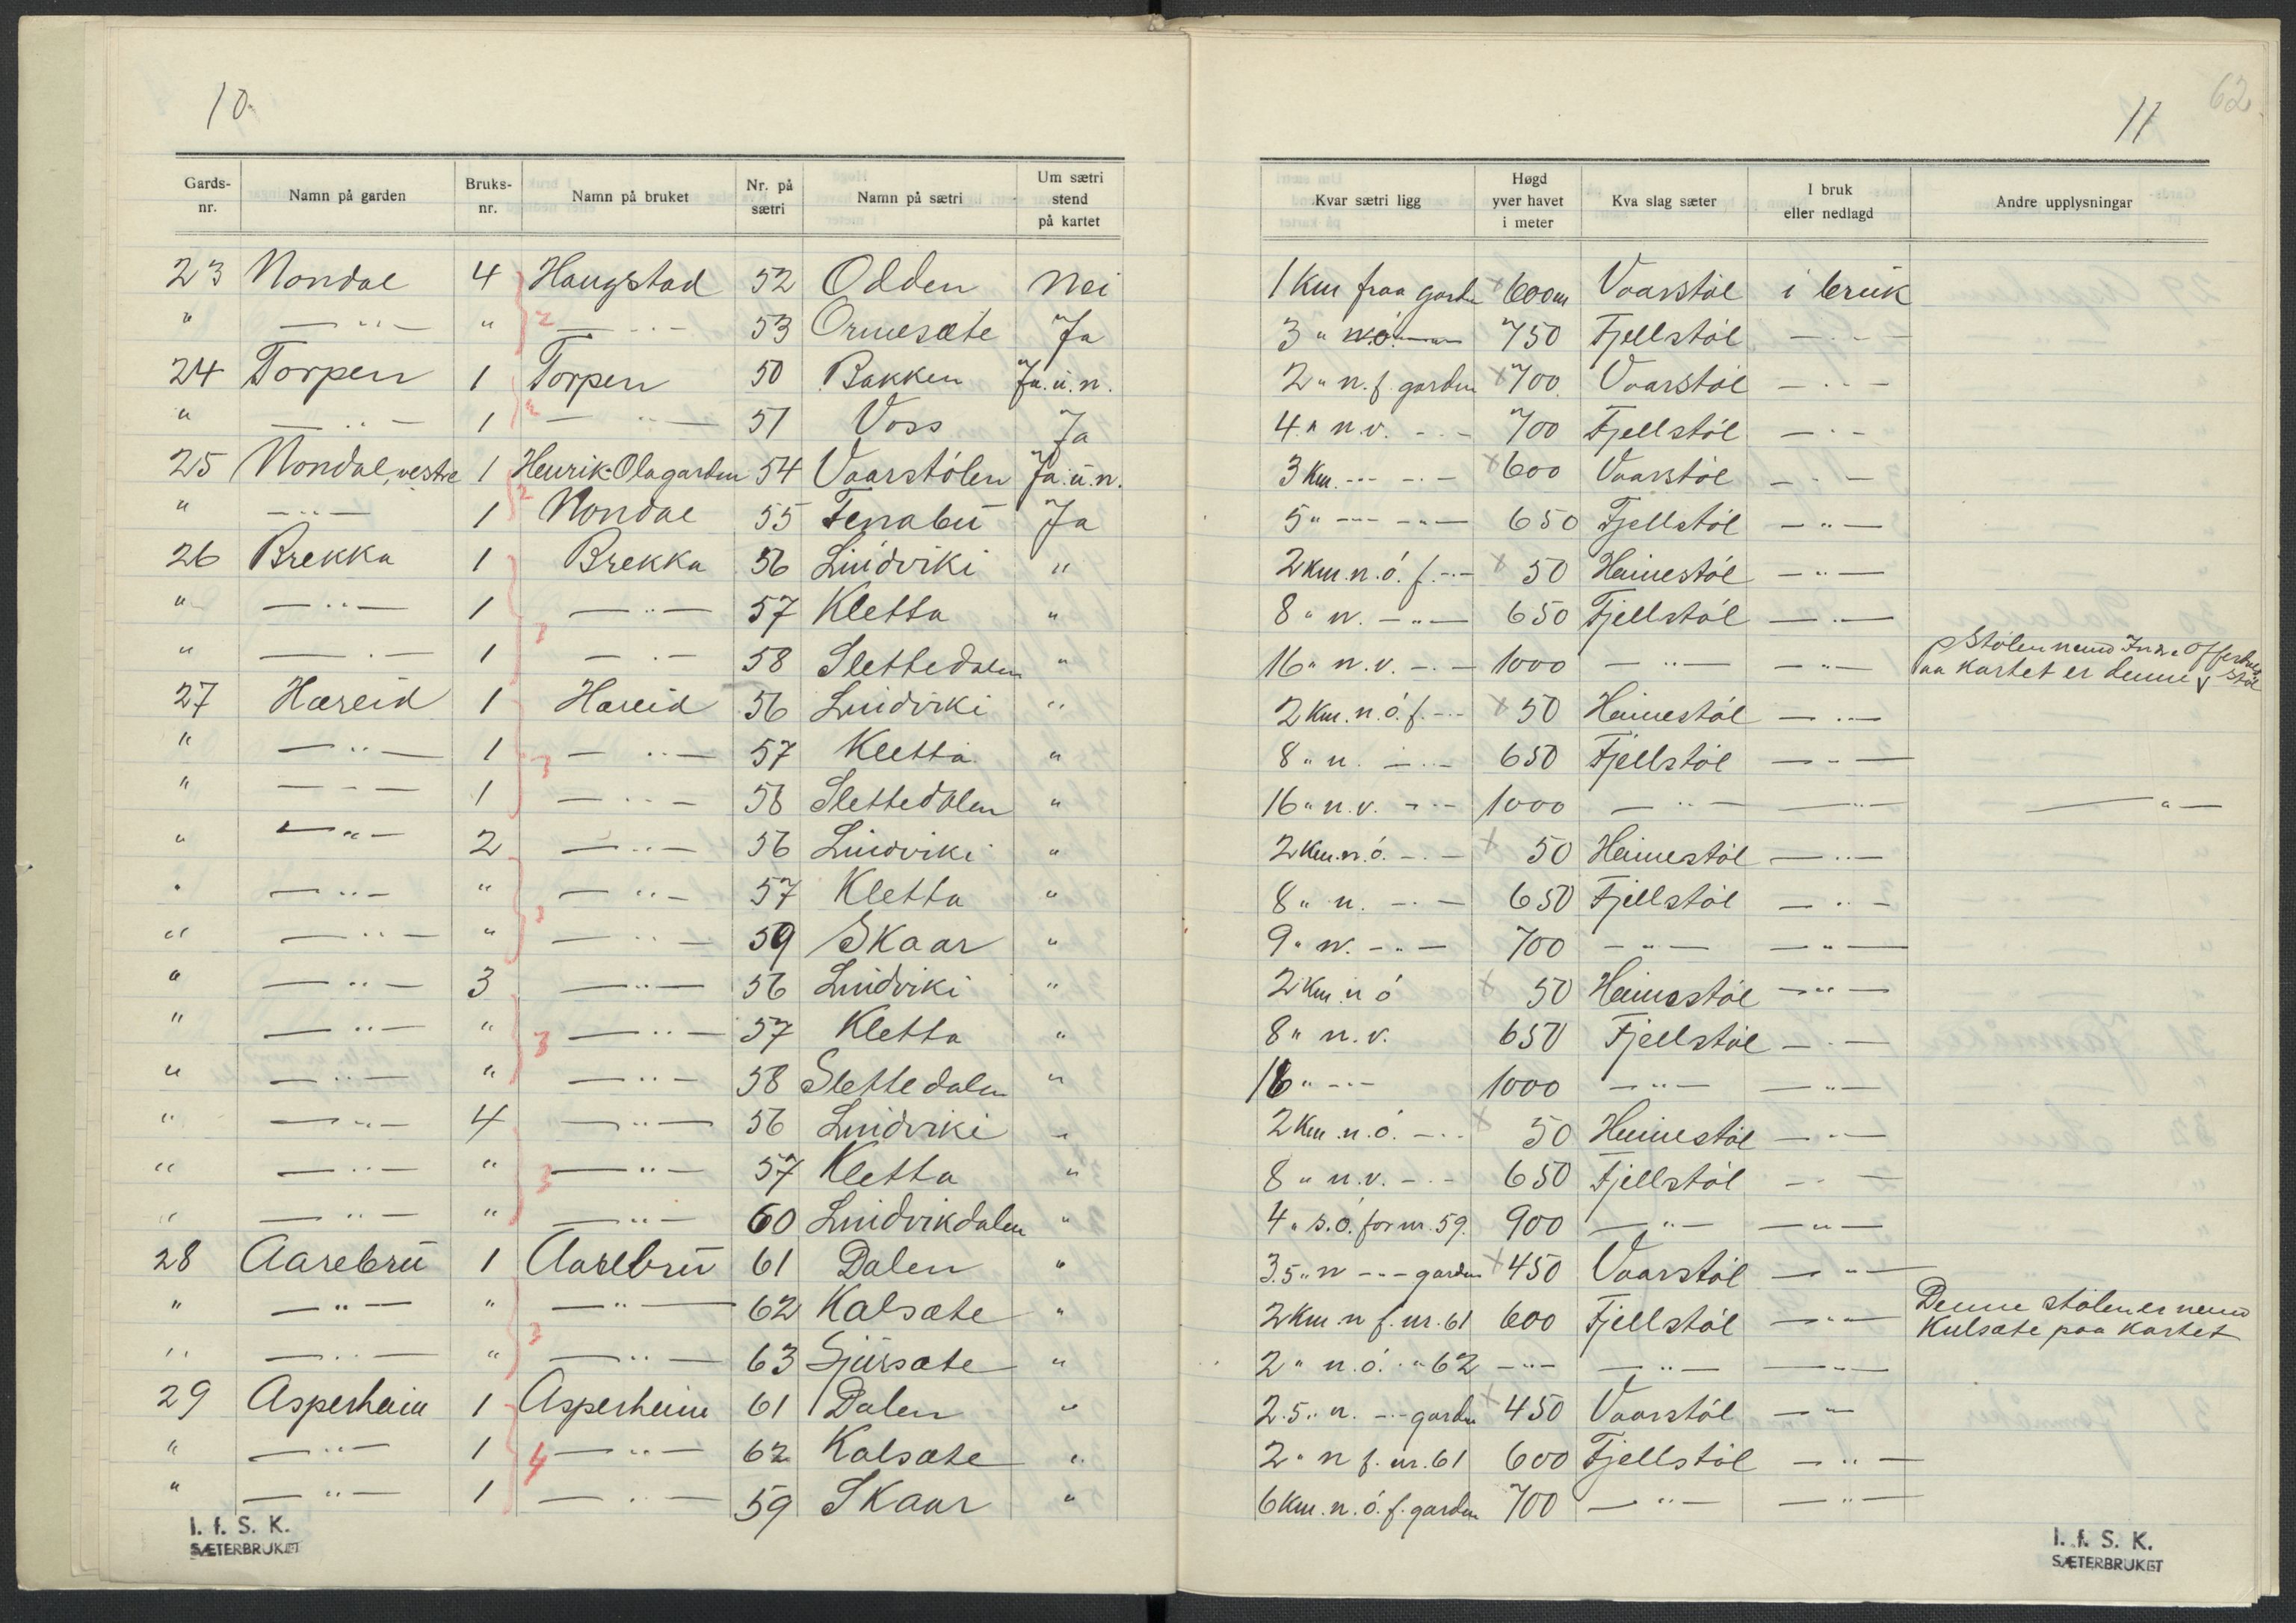 10
Gards-nr. Namn på garden Bruks-nr. Namn på bruket Nr. på sætri Namn på sætri Um sætri stend på kartet
23 Nondal 4 Haugstad 52 Odden Nei
" — " — " — " — 53 Ormesæte Ja
24 Torpen 1 Torpen 50 Bakken Ja.u.n.
" — " — 1 — " — 51 Voss Ja
25 Nondal, vestre 1 Henrik-Olagarden 54 Vaarstólen Ja.u.n.
" — " — 1 Nondal 55 Fenabu Ja
26 Brekka 1 Brekka 56 Lindviki "
" — " — 1 — " — 57 Kletta "
" — " — 1 — " — 58 Slettedalen "
27 Hæreid 1 Hæreid 56 Lindviki "
" — " — 1 — " — 57 Kletta "
" — " — 1 — " — 58 Slettedalen "
" — " — 2 — " — 56 Lindviki "
" — " — " — " — 57 Kletta "
" — " — " — " — 59 Skaar "
" — " — 3 — " — 56 Lindviki "
" — " — " — " — 57 Kletta "
" — " — " — " — 58 Slettedalen "
" — " — 4 — " — 56 Lindviki "
" — " — " — " — 57 Kletta "
" — " — " — " — 60 Lindvikdalen "
28 Aarebru 1 Aarebru 61 Dalen "
" — " — " — " — 62 Kalsæte "
" — " — " — " — 63 Sjursæte "
29 Asperheim 1 Asperheim 61 Dalen "
" — " — 1 — " — 62 Kalsæte "
" — " — 1 — " — 59 Skaar "
I. f. S. K.
SÆTERBRUKET
62
11
Kvar sætri ligg Høgd yver havet i meter Kva slag sæter I bruk eller nedlagd Andre upplysningar
1 Km fraa garden x 600m Vaarstól i bruk
3 " n.ó. — " — 750 Fjellstól — " —
2 " n. f. garden x 700 Vaarstól — " —
4 " n.v. — " — 700 Fjellstól — " —
3 Km. — " — x 600 Vaarstól — " —
5 " — " — 650 Fjellstól — " —
2 Km. n.ó. f. — " — x 50 Heimestól — " —
8 " n. — " — 650 Fjellstól — " —
16 " n.v. — " — 1000 — " — — " — Stólen nemd Indre
paa kartet er denne stól
2 Km. n.ó. f. — " — x 50 Heimestól — " —
8 " n. — " — 650 Fjellstól — " —
16 " n.v. — " — 1000 — " — — " — — " —
2 Km. n.ó. — " — x 50 Heimestól — " —
8 " n. — " — 650 Fjellstól — " —
9 " n. — " — 700 — " — — " —
2 Km n ó x 50 Heimestól — " —
8 " n.v. 650 Fjellstól — " —
16 " — " — 1000 — " — — " —
2 Km. n.ó. — " — x 50 Heimestól — " —
8 " n.v. — " — 650 Fjellstól — " —
4 " s.ó. for nr. 59. 900 — " — — " —
3.5 " n — " — garden x 450 Vaarstól — " —
2 Km n f. nr. 61 600 Fjellstól — " — Denne stólen er nemd
Kulsæte paa kartet
2 " n.ó. " 62 — " — — " — — " —
2.5 " n. — " — garden x 450 Vaarstól — " —
2 " n f. nr. 61 600 Fjellstól — " —
6 Km. n.ó. f. garden 700 — " — — " —
I. f. S. K.
SÆTERBRUKET